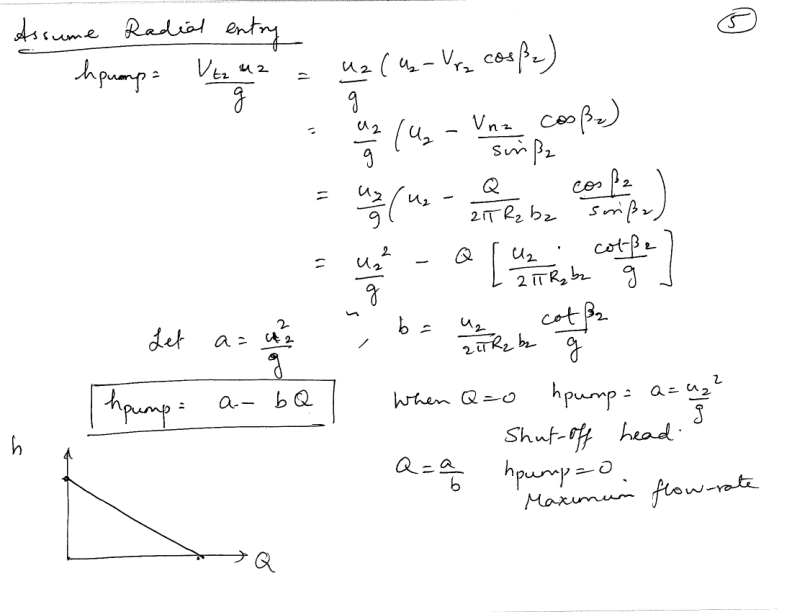 5
Assume Radial entry
hpump = Vt2 u2 / g = u2/g (u2 - Vr2 cosβ2)
= u2/g (u2 - Vn2/sinβ2 cosβ2)
= u2/g (u2 - Q/2πR2b2 cosβ2/sinβ2)
= u2²/g - Q [u2/2πR2b2 · cotβ2/g]
Let a = u2²/g , b = u2/2πR2b2 cotβ2/g
hpump = a - bQ
When Q=0 hpump = a = u2²/g
Shut-off head.
Q = a/b hpump = 0
Maximum flow-rate
h
Q